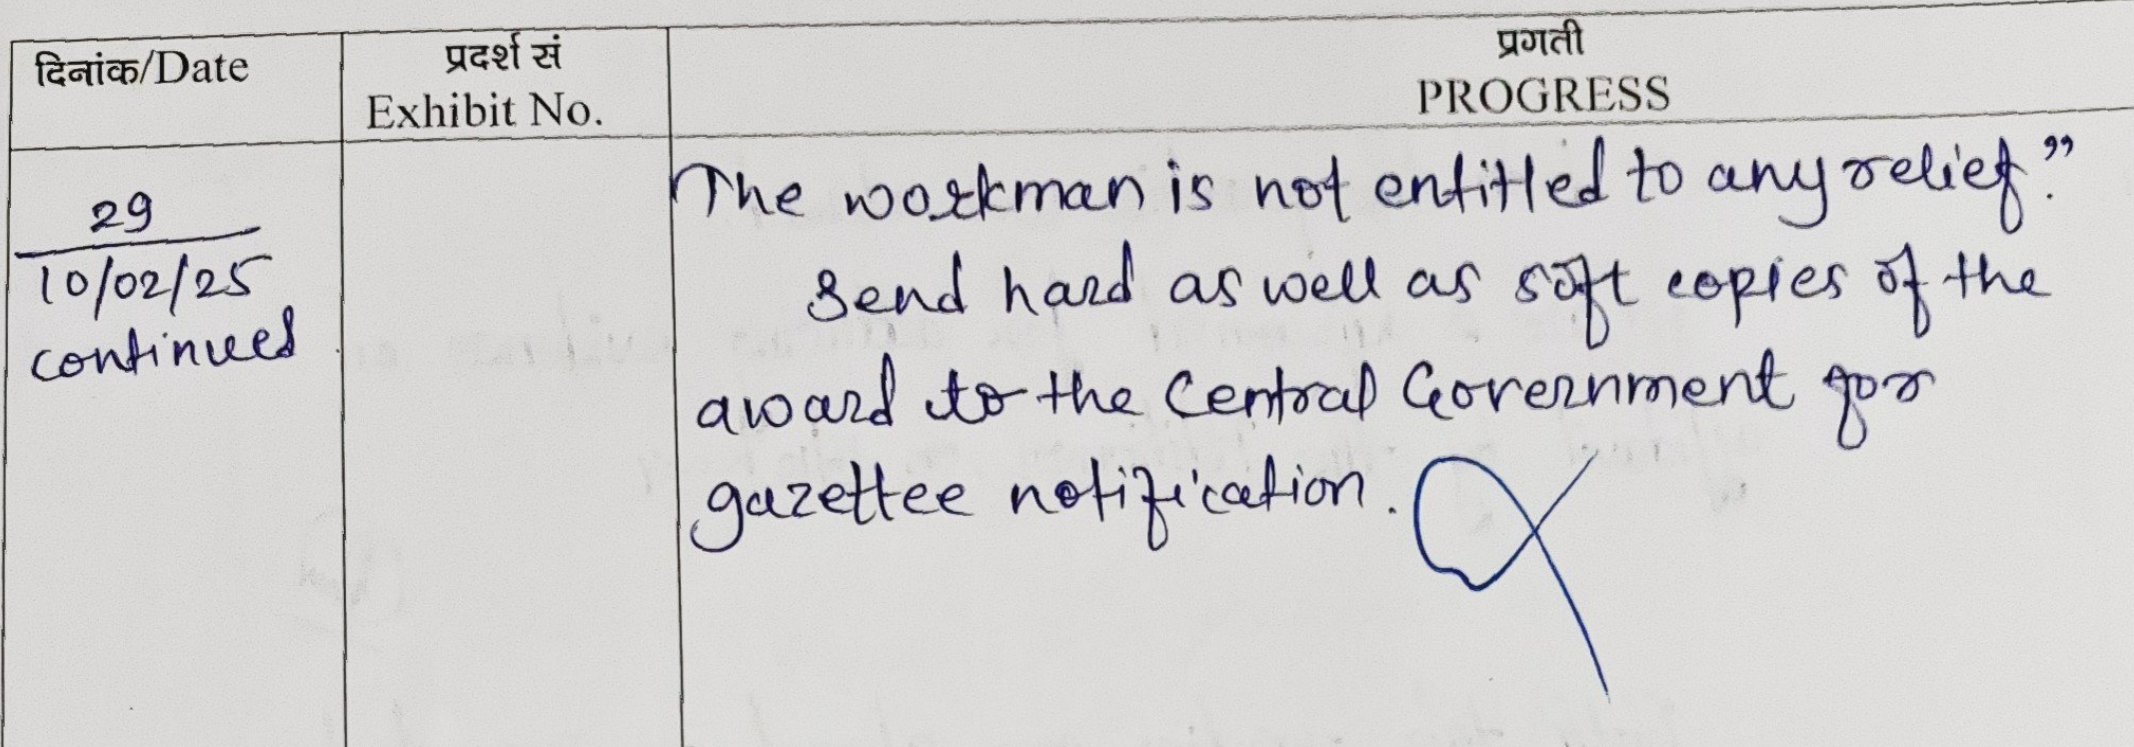 दिनांक/Date
प्रदर्श सं
Exhibit No.
प्रगती
PROGRESS
29
10/02/25
continued
The workman is not entitled to any relief."
Send hard as well as soft copies of the
award to the Central Government for
gazettee notification.